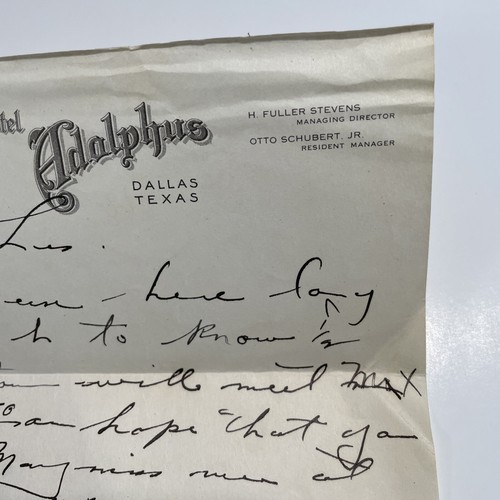 tel
Adolphus
DALLAS
TEXAS
H. FULLER STEVENS
MANAGING DIRECTOR
OTTO SCHUBERT, JR.
RESIDENT MANAGER
here
h to know
will meet
can hope that you
May miss me at